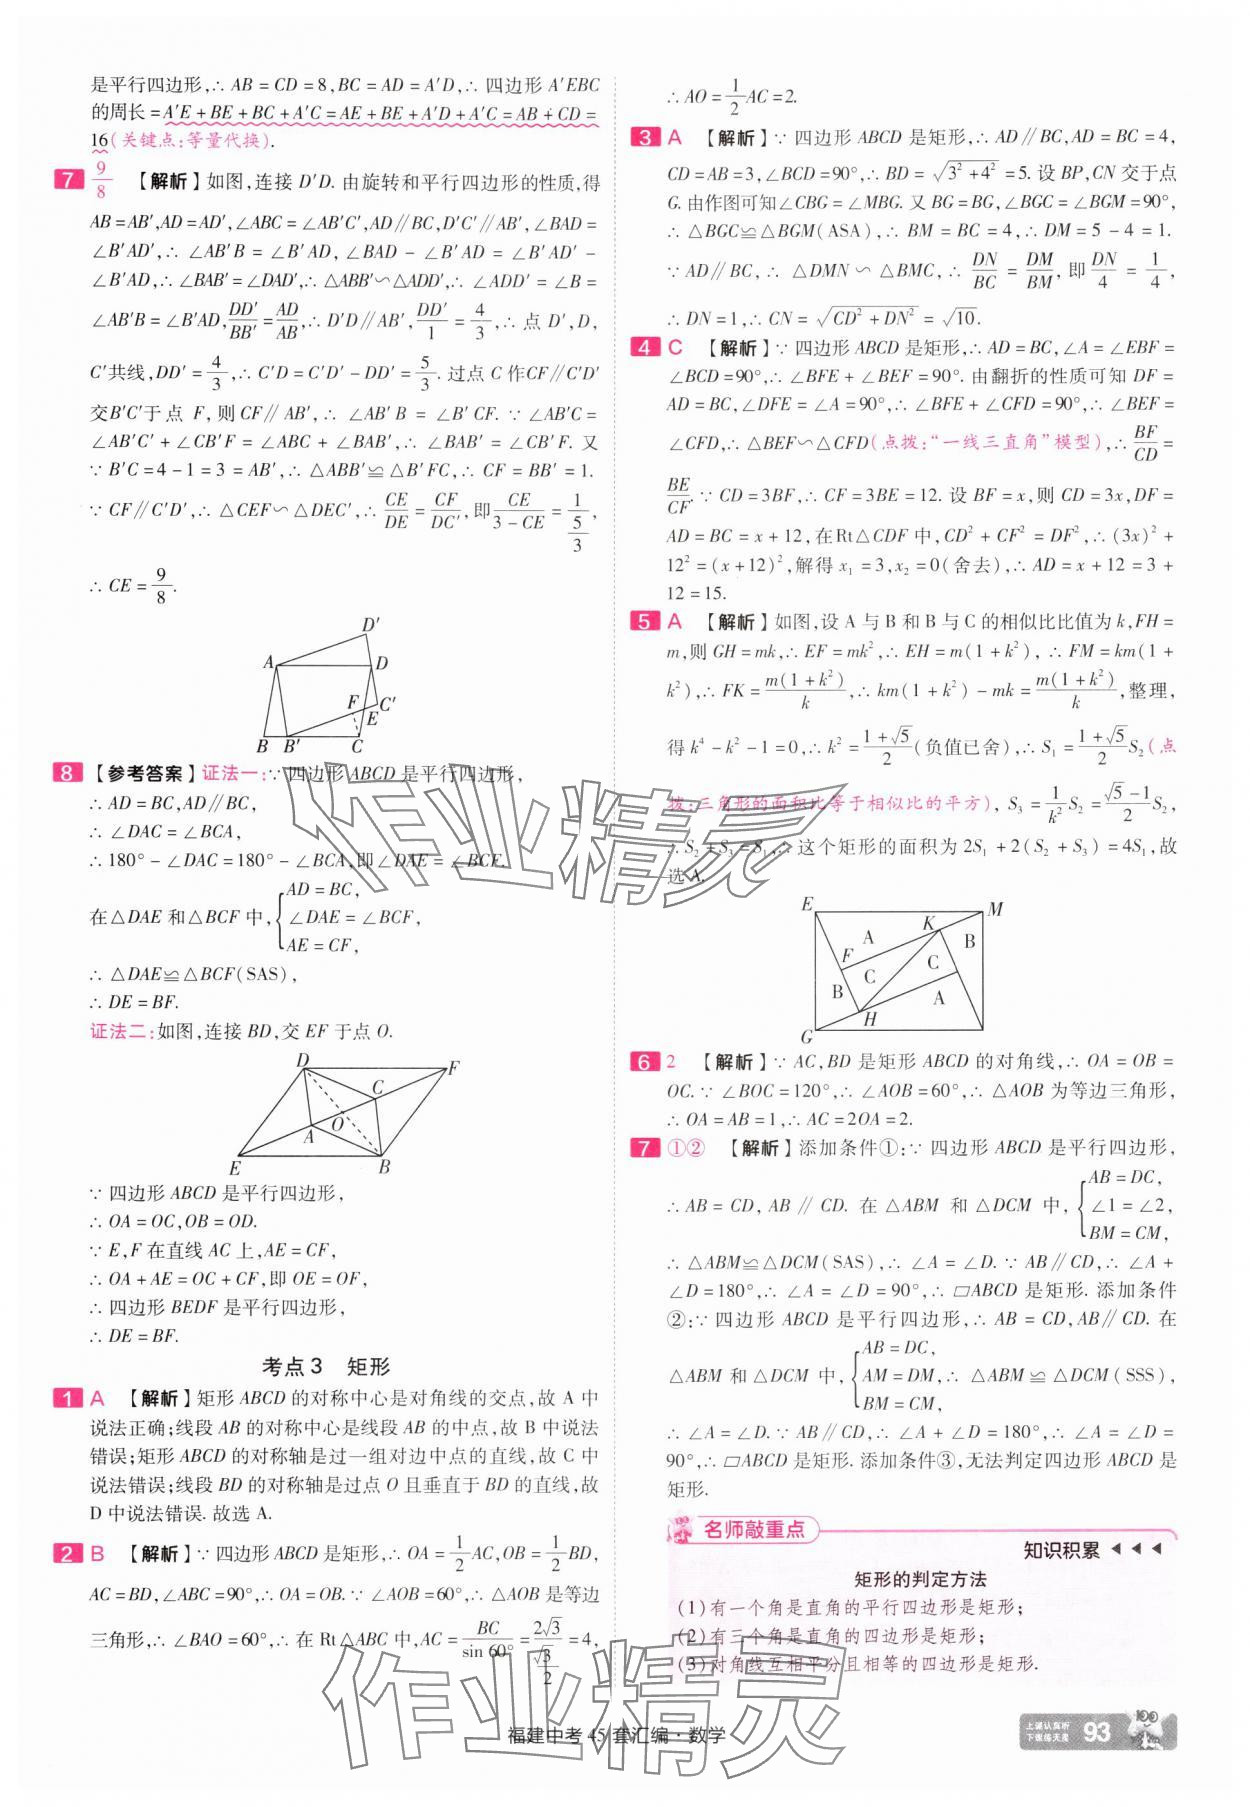 是平行四边形,∴ AB = CD = 8,BC = AD = A′D,∴ 四边形 A′EBC
的周长 = A′E + BE + BC + A′C = AE + BE + A′D + A′C = AB + CD =
16(关键点:等量代换).
7 9/8 【解析】如图,连接 D′D. 由旋转和平行四边形的性质,得
AB = AB′,AD = AD′,∠ABC = ∠AB′C′,AD∥BC,D′C′∥AB′,∠BAD =
∠B′AD′,∴ ∠AB′B = ∠B′AD,∠BAD - ∠B′AD = ∠B′AD′ -
∠B′AD,∴ ∠BAB′ = ∠DAD′,∴ △ABB′∽△ADD′,∴ ∠ADD′ = ∠B =
∠AB′B = ∠B′AD,DD′/BB′ = AD/AB,∴ D′D∥AB′,DD′/1 = 4/3,∴ 点 D′,D,
C′共线,DD′ = 4/3,∴ C′D = C′D′ - DD′ = 5/3. 过点 C 作CF∥C′D′
交B′C′于点 F,则 CF∥AB′,∴ ∠AB′B = ∠B′CF. ∵ ∠AB′C =
∠AB′C′ + ∠CB′F = ∠ABC + ∠BAB′,∴ ∠BAB′ = ∠CB′F. 又
∵ B′C = 4 - 1 = 3 = AB′,∴ △ABB′≌△B′FC,∴ CF = BB′ = 1.
∵ CF∥C′D′,∴ △CEF∽△DEC′,∴ CE/DE = CF/DC′,即 CE/(3 - CE) = 1/(5/3),
∴ CE = 9/8.
D′
A D
F C′
E
B B′ C
8 【参考答案】证法一:∵ 四边形 ABCD 是平行四边形,
∴ AD = BC,AD∥BC,
∴ ∠DAC = ∠BCA,
∴ 180° - ∠DAC = 180° - ∠BCA,即∠DAE = ∠BCF.
在△DAE 和△BCF 中, { AD = BC,
∠DAE = ∠BCF,
AE = CF,
∴ △DAE≌△BCF(SAS),
∴ DE = BF.
证法二:如图,连接 BD,交 EF 于点 O.
D F
C
O
A
E B
∵ 四边形 ABCD 是平行四边形,
∴ OA = OC,OB = OD.
∵ E,F 在直线 AC 上,AE = CF,
∴ OA + AE = OC + CF,即 OE = OF,
∴ 四边形 BEDF 是平行四边形,
∴ DE = BF.
考点 3 矩形
1 A 【解析】矩形 ABCD 的对称中心是对角线的交点,故 A 中
说法正确;线段 AB 的对称中心是线段 AB 的中点,故 B 中说法
错误;矩形 ABCD 的对称轴是过一组对边中点的直线,故 C 中
说法错误;线段 BD 的对称轴是过点 O 且垂直于 BD 的直线,故
D 中说法错误. 故选 A.
2 B 【解析】∵ 四边形 ABCD 是矩形,∴ OA = 1/2 AC,OB = 1/2 BD,
AC = BD,∠ABC = 90°,∴ OA = OB. ∵ ∠AOB = 60°,∴ △AOB 是等边
三角形,∴ ∠BAO = 60°,∴ 在 Rt△ABC 中,AC = BC/sin 60° = 2√3/(√3/2) = 4,
∴ AO = 1/2 AC = 2.
3 A 【解析】∵ 四边形 ABCD 是矩形,∴ AD∥BC,AD = BC = 4,
CD = AB = 3,∠BCD = 90°,∴ BD = √(3² + 4²) = 5. 设 BP,CN 交于点
G. 由作图可知∠CBG = ∠MBG. 又 BG = BG,∠BGC = ∠BGM = 90°,
∴ △BGC≌△BGM(ASA),∴ BM = BC = 4,∴ DM = 5 - 4 = 1.
∵ AD∥BC,∴ △DMN∽△BMC,∴ DN/BC = DM/BM,即 DN/4 = 1/4,
∴ DN = 1,∴ CN = √(CD² + DN²) = √10.
4 C 【解析】∵ 四边形 ABCD 是矩形,∴ AD = BC,∠A = ∠EBF =
∠BCD = 90°,∴ ∠BFE + ∠BEF = 90°. 由翻折的性质可知 DF =
AD = BC,∠DFE = ∠A = 90°,∴ ∠BFE + ∠CFD = 90°,∴ ∠BEF =
∠CFD,∴ △BEF∽△CFD(点拨:“一线三直角”模型),∴ BF/CD =
BE/CF. ∵ CD = 3BF,∴ CF = 3BE = 12. 设 BF = x,则 CD = 3x,DF =
AD = BC = x + 12,在Rt△CDF 中,CD² + CF² = DF²,∴ (3x)² +
12² = (x + 12)²,解得 x₁ = 3,x₂ = 0(舍去),∴ AD = x + 12 = 3 +
12 = 15.
5 A 【解析】如图,设 A 与 B 和 B 与 C 的相似比比值为 k,FH =
m,则 GH = mk,∴ EF = mk²,∴ EH = m(1 + k²),∴ FM = km(1 +
k²),∴ FK = m(1 + k²)/k,∴ km(1 + k²) - mk = m(1 + k²)/k,整理,
得 k⁴ - k² - 1 = 0,∴ k² = (1 + √5)/2(负值已舍),∴ S₁ = (1 + √5)/2 S₂(点
拨:三角形的面积比等于相似比的平方),S₃ = 1/k² S₂ = (√5 - 1)/2 S₂,
∴ S₂ + S₃ = S₁,∴ 这个矩形的面积为 2S₁ + 2(S₂ + S₃) = 4S₁,故
选 A.
E M
K
A B
F
C C
B A
H
G
6 2 【解析】∵ AC,BD 是矩形 ABCD 的对角线,∴ OA = OB =
OC. ∵ ∠BOC = 120°,∴ ∠AOB = 60°,∴ △AOB 为等边三角形,
∴ OA = AB = 1,∴ AC = 2OA = 2.
7 ①② 【解析】添加条件①:∵ 四边形 ABCD 是平行四边形,
∴ AB = CD,AB∥CD. 在 △ABM 和 △DCM 中, { AB = DC,
∠1 = ∠2,
BM = CM,
∴ △ABM≌△DCM(SAS),∴ ∠A = ∠D. ∵ AB∥CD,∴ ∠A +
∠D = 180°,∴ ∠A = ∠D = 90°,∴ ▱ABCD 是矩形. 添加条件
②:∵ 四边形 ABCD 是平行四边形,∴ AB = CD,AB∥CD. 在
△ABM 和 △DCM 中, { AB = DC,
AM = DM,
BM = CM,
∴ △ABM≌△DCM(SSS),
∴ ∠A = ∠D. ∵ AB∥CD,∴ ∠A + ∠D = 180°,∴ ∠A = ∠D =
90°,∴ ▱ABCD 是矩形. 添加条件③,无法判定四边形 ABCD 是
矩形.
名师敲重点
知识积累
矩形的判定方法
(1)有一个角是直角的平行四边形是矩形;
(2)有三个角是直角的四边形是矩形;
(3)对角线互相平分且相等的四边形是矩形.
福建中考 45 套汇编·数学
上课认真听
下课练天星
93
100
作业精灵
作业精灵